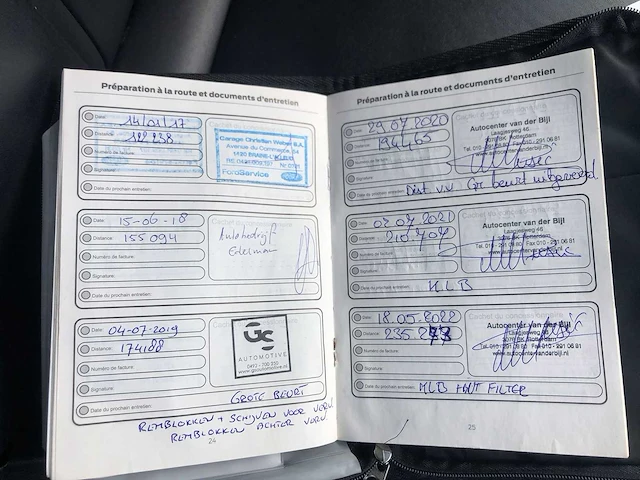 Préparation à la route et documents d'entretien
Date: 14/01/17
Distance: 122.738
Numéro de facture:
Signature:
Date du prochain entretien:
Garage Christian Weber S.A.
Avenue du Commerce
FordService
Date: 15-06-18
Distance: 155094
Numéro de facture:
Signature:
Date du prochain entretien:
Autobedrijf
Edelman
Date: 04-07-2019
Distance: 174188
Numéro de facture:
Signature:
Date du prochain entretien:
GC
AUTOMOTIVE
GROTE BEURT
REMBLOKKEN + SCHIJVEN VOOR VERV.
REMBLOKKEN ACHTER VERV.
24
Préparation à la route et documents d'entretien
Date: 29 07 2020
Distance: 194465
Numéro de facture:
Signature:
Date du prochain entretien:
Autocenter van der Bijl
Laagjesweg 46
Rotterdam
Tel. 010 - 291 06 80 Fax 010 - 291 06 81
www.autocentervanderbijl.nl
Date: 02 07 2021
Distance: 210.707
Numéro de facture:
Signature:
Date du prochain entretien: K.L.B
Autocenter van der Bijl
Laagjesweg 46
Rotterdam
Tel. 010 - 291 06 80 Fax 010 - 291 06 81
Date: 18.05.2022
Distance:
Numéro de facture:
Signature:
Date du prochain entretien: KLB + INT FILTER
Autocenter van der Bijl
Laagjesweg 46
Rotterdam
Tel. 010 - 291 06 80 Fax 010 - 291 06 81
www.autocentervanderbijl.nl
25